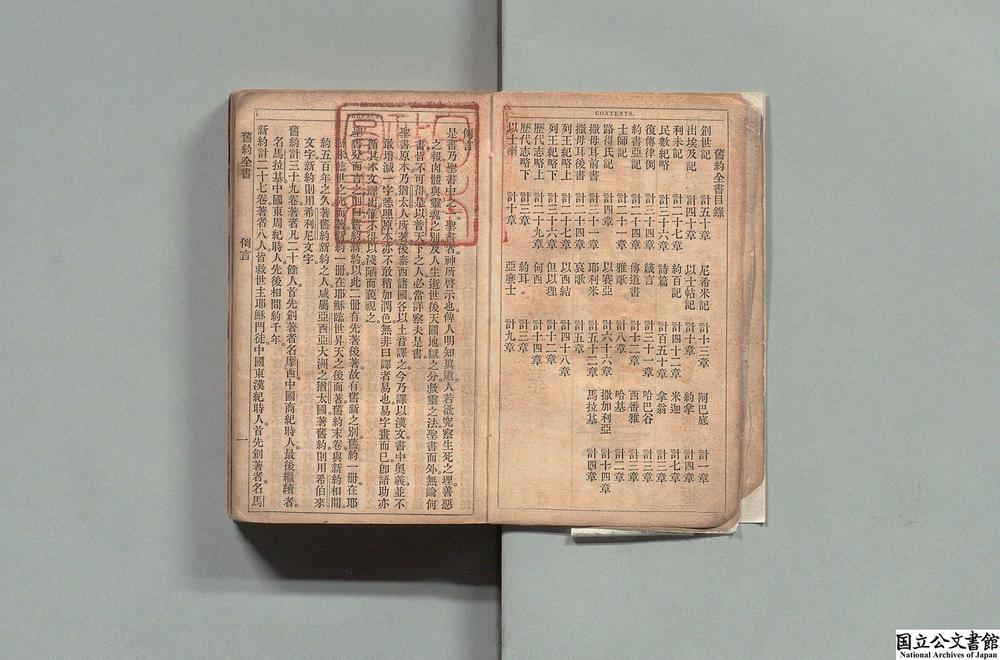 CONTENTS.
舊約全書目錄
創世記 計五十章 尼希米記 計十三章 阿巴底 計一章
出埃及記 計四十章 以士帖記 計十章 約拿 計四章
利未記 計二十七章 約百記 計四十二章 米迦 計七章
民數紀略 計三十六章 詩篇 計百五十章 拿翁 計三章
復傳律例 計三十四章 箴言 計三十一章 哈巴谷 計三章
約書亞記 計二十四章 傳道書 計十二章 西番雅 計三章
士師記 計二十一章 雅歌 計八章 哈基 計二章
路得氏記 計四章 以賽亞 計六十六章 撒加利亞 計十四章
撒母耳前書 計三十一章 耶利米 計五十二章 馬拉基 計四章
撒母耳後書 計二十四章 哀歌 計五章
列王紀略上 以西結 計四十八章
列王紀略下 但以理 計十二章
歷代志略上 計二十九章 何西 計十四章
歷代志略下 約耳 計三章
以士喇 計十章 亞麼士 計九章
例言
是書乃聖書中之一聖書者神所啓示也。傳人明知真道人若欲究察生死之理善惡
之報肉體與靈魂之別及人生逝世後天國地獄之分救靈之法聖書而外無論何
書皆不可得是以普天下之人必當詳察夫是書
聖書原本乃猶太人所著後泰西諸國各以土音譯之今乃譯以漢文書中奧義並不
敢增減一字悉照原本亦不敢稍加潤色無非曰譯者易也易字畫而已卽語助亦
循其本文譯出惟不得以淺陋而藐視之。
聖書分而言之則曰舊約新約以此二冊有先著後著故有舊新之別。舊約一冊在耶
穌未臨世之先而著新約一冊在耶穌臨世昇天之後而著舊約末卷與新約相間
約五百年之久著舊約新約之人咸屬亞西亞大洲之猶太國著舊約則用希伯來
文字新約則用希利尼文字。
舊約計三十九卷著者凡二十餘人。首先創著者名摩西。中國商紀時人。最後繼續者。
名馬拉基中國東周紀時人。先後相間約千年。
新約計二十七卷著者八人皆救世主耶穌門徒中國東漢紀時人。首先創著者名馬
舊約全書 例言 一
国立公文書館
National Archives of Japan